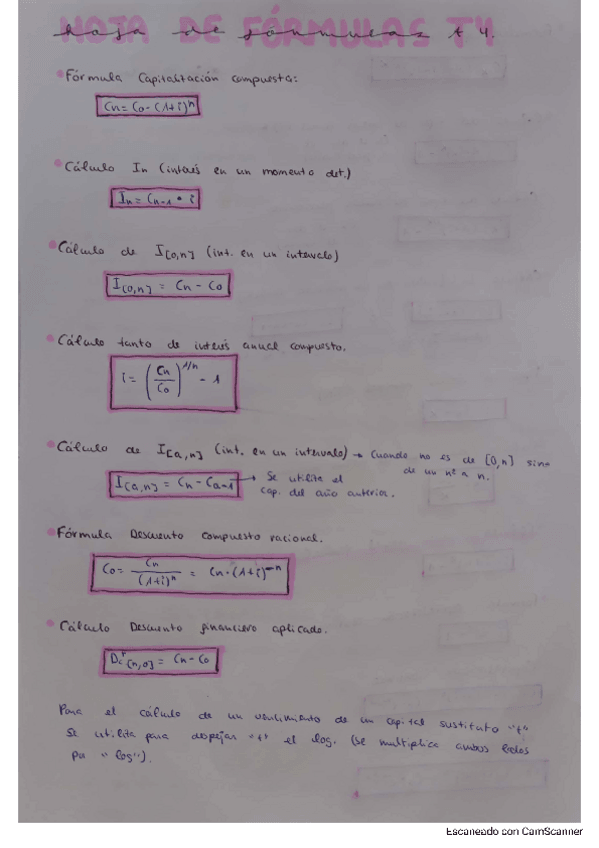 HOJA DE FÓRMULAS T4
hoja de fórmulas t4.
Fórmula Capitalitación compuesta:
Cn = Co · (1+i)^n
Cálculo In (interés en un momento det.)
In = Cn-1 • i
Cálculo de I[0,n] (int. en un intervalo)
I[0,n] = Cn - Co
Cálculo tanto de interés anual compuesto.
i = (Cn/Co)^1/n - 1
Cálculo de I[a,n] (int. en un intervalo) → Cuando no es de [0,n] sino
de un nº a n.
I[a,n] = Cn - Ca-1 → Se utilita el
cap. del año anterior.
Fórmula Descuento compuesto racional.
Co = Cn/(1+i)^n = Cn · (1+i)^-n
Cálculo Descuento financiero aplicado.
Dc^r[n,0] = Cn - Co
Para el cálculo de un vencimiento de un capital sustituto "t"
se utilita para despejar "t" el log. (se multiplica ambos lados
por "log").
Escaneado con CamScanner